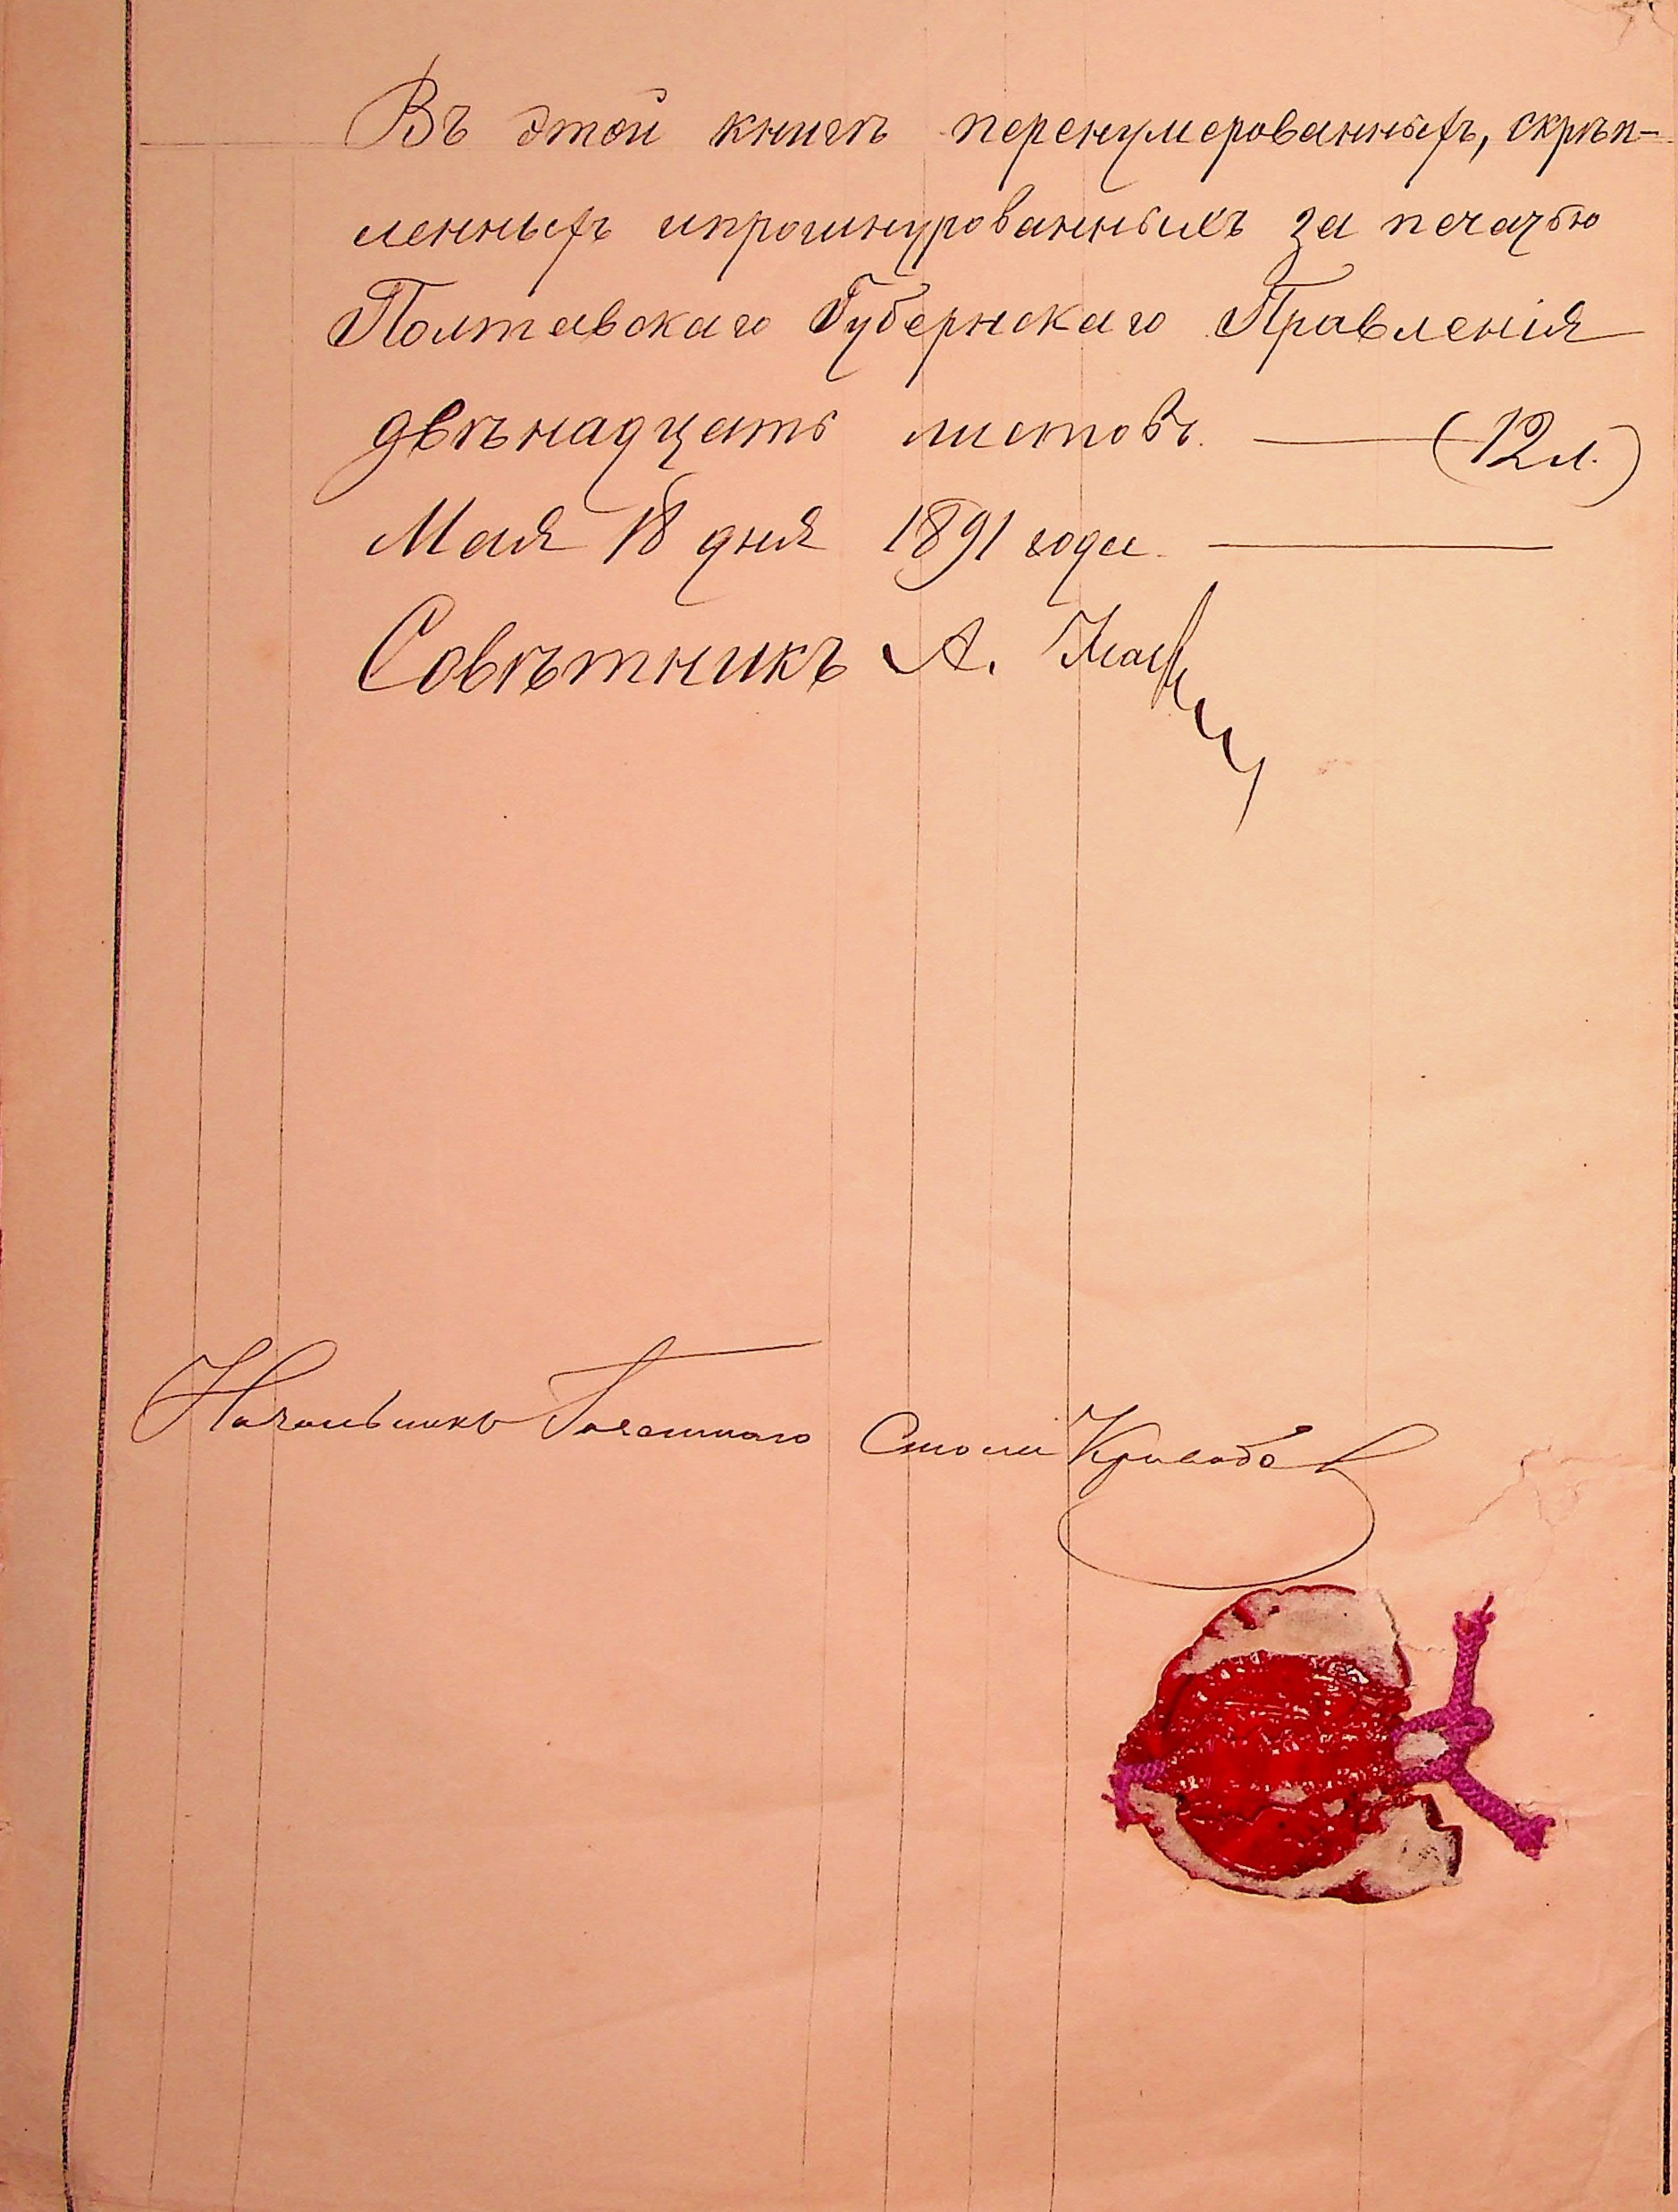 Въ этой книгѣ перенумерованныхъ, скрѣп-
ленныхъ ипрошнурованныхъ за печатью
Полтавскаго Губернскаго Правленія
двѣнадцать листовъ. — (12 л.)
Мая 18 дня 1891 года. —
Совѣтникъ А.
Начальникъ Стола